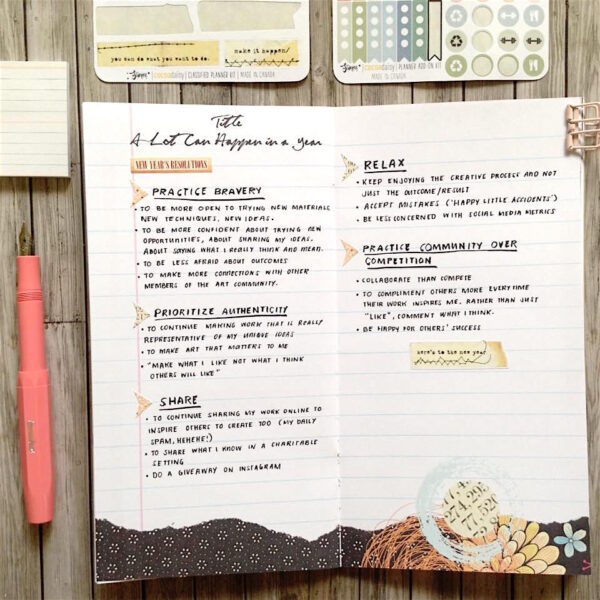 you can do what you want to do.
make it happen!
cocoa daisy | CLASSIFIED PLANNER KIT | MADE IN CANADA
cocoa daisy | PLANNER ADD-ON KIT
MADE IN CANADA
Title
A Lot Can Happen in a year
NEW YEAR'S RESOLUTIONS
PRACTICE BRAVERY
• TO BE MORE OPEN TO TRYING NEW MATERIALS
NEW TECHNIQUES, NEW IDEAS.
• TO BE MORE CONFIDENT ABOUT TRYING NEW
OPPORTUNITIES, ABOUT SHARING MY IDEAS.
ABOUT SAYING WHAT I REALLY THINK AND MEAN.
• TO BE LESS AFRAID ABOUT OUTCOMES
• TO MAKE MORE CONNECTIONS WITH OTHER
MEMBERS OF THE ART COMMUNITY.
PRIORITIZE AUTHENTICITY
• TO CONTINUE MAKING WORK THAT IS REALLY
REPRESENTATIVE OF MY UNIQUE IDEAS
• TO MAKE ART THAT MATTERS TO ME
• "MAKE WHAT I LIKE NOT WHAT I THINK
OTHERS WILL LIKE"
SHARE
• TO CONTINUE SHARING MY WORK ONLINE TO
INSPIRE OTHERS TO CREATE TOO (MY DAILY
SPAM, HEHEHE!)
• TO SHARE WHAT I KNOW IN A CHARITABLE
SETTING
• DO A GIVEAWAY ON INSTAGRAM
RELAX
• KEEP ENJOYING THE CREATIVE PROCESS AND NOT
JUST THE OUTCOME/RESULT
• ACCEPT MISTAKES ('HAPPY LITTLE ACCIDENTS')
• BE LESS CONCERNED WITH SOCIAL MEDIA METRICS
PRACTICE COMMUNITY OVER
COMPETITION
• COLLABORATE THAN COMPETE
• TO COMPLIMENT OTHERS MORE EVERYTIME
THEIR WORK INSPIRES ME. RATHER THAN JUST
"LIKE", COMMENT WHAT I THINK.
• BE HAPPY FOR OTHERS' SUCCESS
here's to the new year